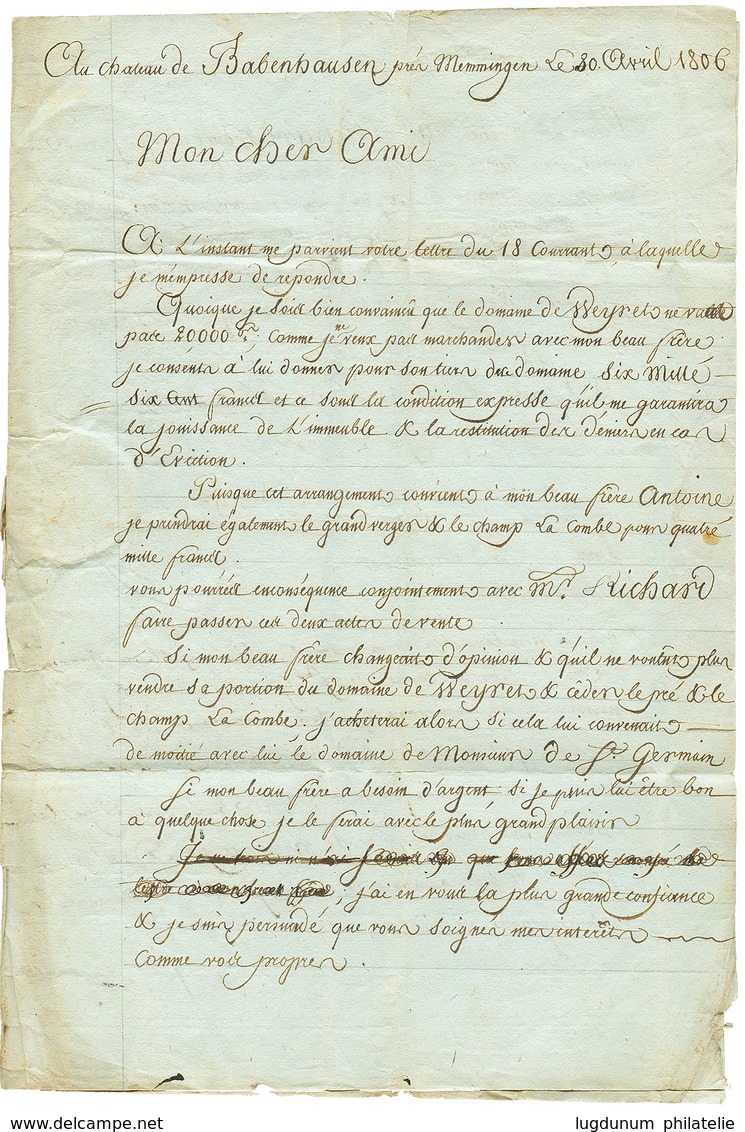 Au chateau de Babenhausen près Memmingen Le 30. Avril 1806
Mon cher Ami
A L'instant me parvient votre lettre du 18 Courrant, à laquelle
je m'empresse de repondre.
Quoique je sois bien convaincû que le domaine de Weyret ne vaille
pace 20000 fr. Comme je ne veux pas marchander avec mon beau frère
je consens à lui donner pour son tiers du domaine Six Mille
six Cent francs et ce sous la condition expresse qu'il me garantira
la jouissance de L'immeuble & la restitution des deniers en cas
d'Eviction.
Puisque cet arrangement convient à mon beau frère Antoine
je prendrai également le grand verger & le champ La Combe pour quatre
mille francs.
vous pourrés en conséquence conjointement avec Mr. Richard
faire passer ces deux actes de vente
Si mon beau frère changeait d'opinion & qu'il ne voulut plus
vendre sa portion du domaine de Weyret & cèder le pré & le
champ La Combe. j'acheterai alors si cela lui convenait
de moitié avec lui le domaine de Monsieur de St. Germain
Si mon beau frère a besoin d'argent si je puis lui être bon
à quelque chose je le ferai avec le plus grand plaisir
que
, j'ai en vous la plus grande confiance
& je suis persuadé que vous soignes mes interêts
Comme vos propres.
www.delcampe.net
lugdunum philatelie